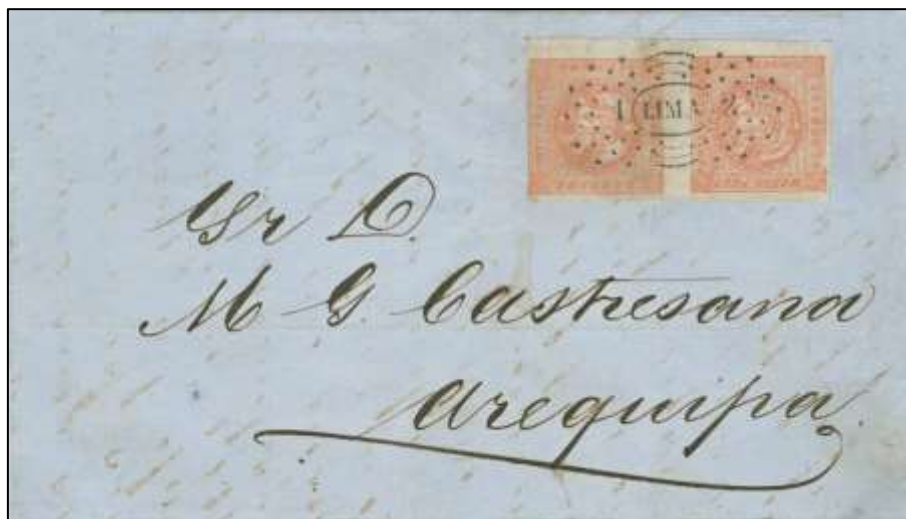 1 LIMA 2
Sr D.
M G. Castresana
Arequipa.